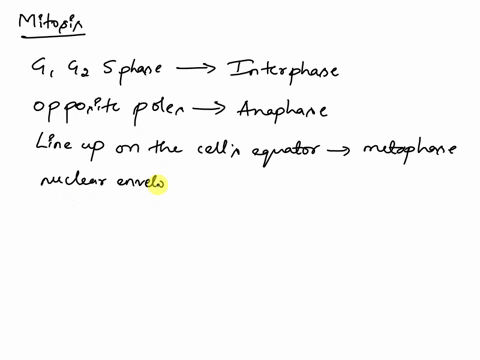 Mitosis
G1 G2 S phase → Interphase
opposite poles → Anaphase
Line up on the cell's equator → metaphase
nuclear envelo